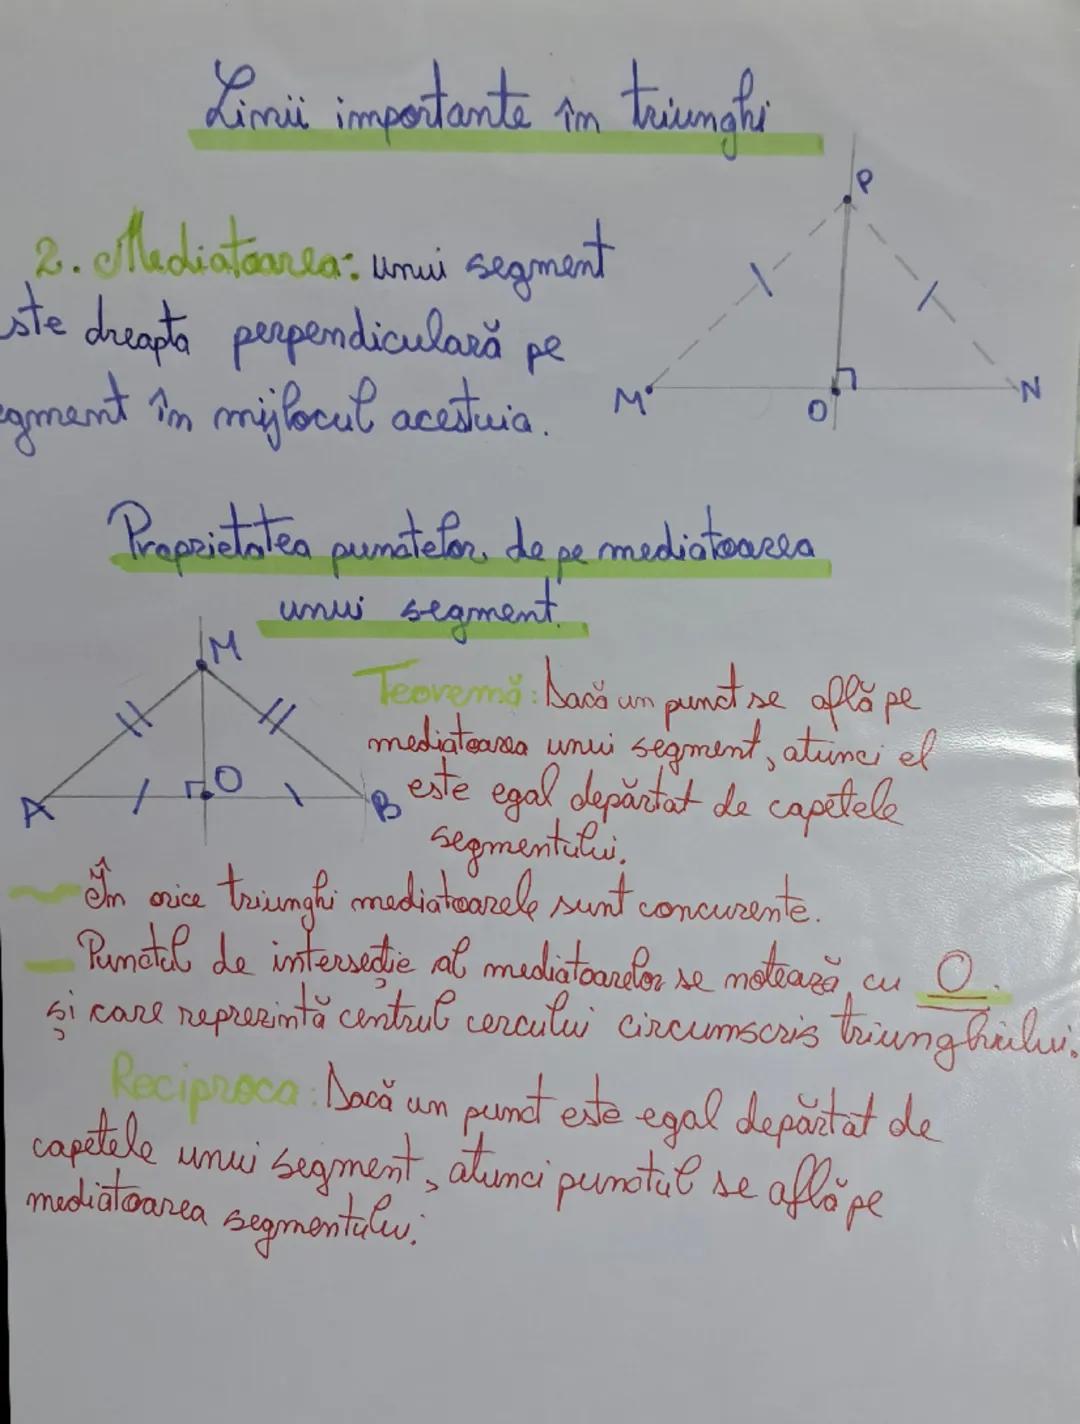 Linii importante în triunghi
P
2. Mediatoarea: unui segment
ste dreapta perpendiculară pe
egment în mijlocul acestuia.
M
O
N
Proprietatea punctelor de pe mediatoarea
unui segment.
M
Teoremă: Dacă un punct se află pe
mediatoarea unui segment, atunci el
este egal depărtat de capetele
segmentului.
A
O
B
În orice triunghi mediatoarele sunt concurente.
Punctul de intersecție al mediatoarelor se notează cu O.
și care reprezintă centrul cercului circumscris triunghiului.
Reciproca: Dacă un punct este egal depărtat de
capetele unui segment, atunci punctul se află pe
mediatoarea segmentului.